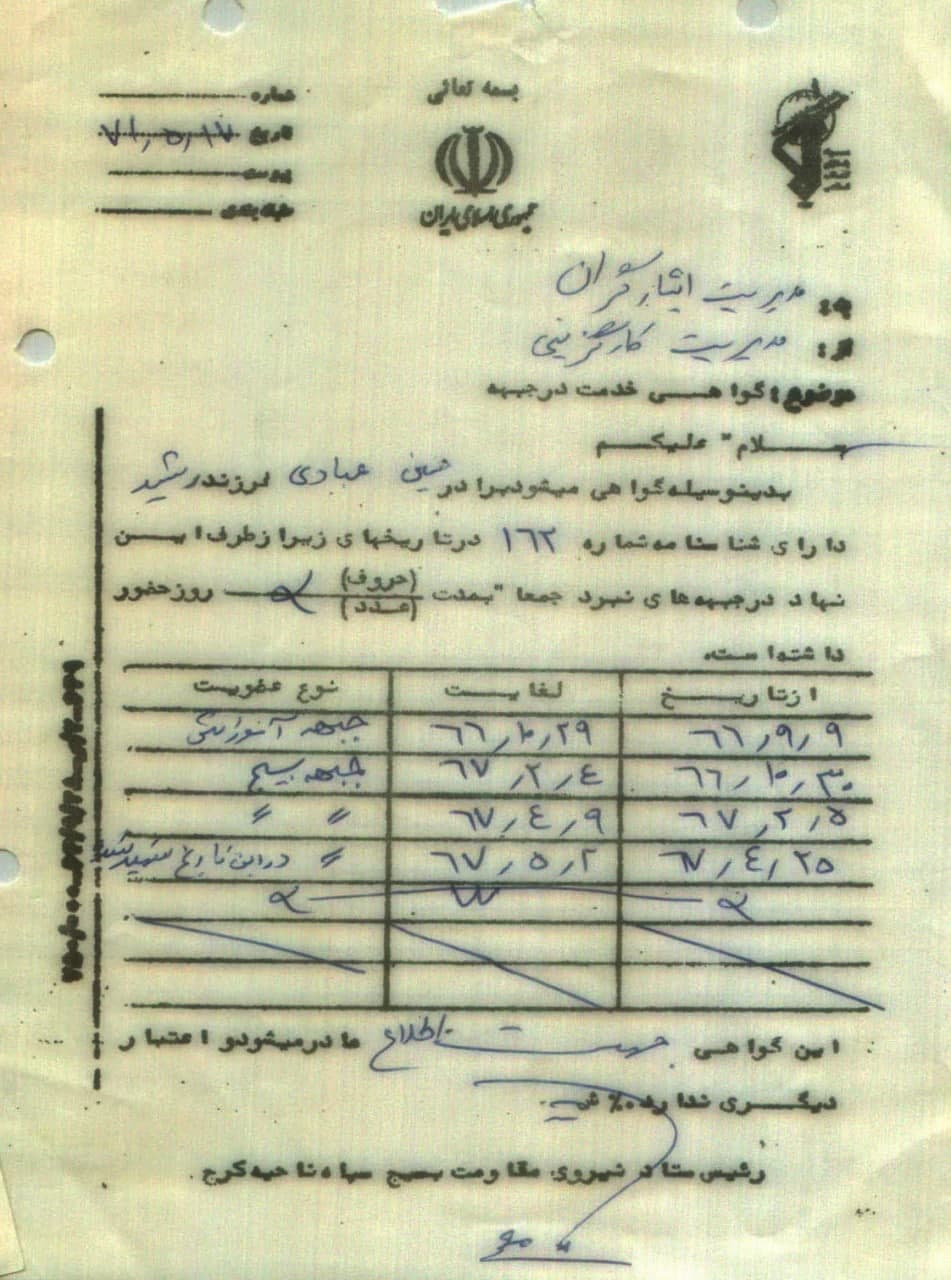 بسمه تعالی
جمهوری اسلامی ایران
شماره
تاریخ ۷۱٫۵٫۱۷
پیوست
طبقه بندی
به: مدیریت ایثارگران
از: مدیریت کارگزینی
موضوع: گواهی خدمت در جبهه
سلام" علیکم
بدینوسیله گواهی میشود برادر حسین عبادی فرزند رشید
دارای شناسنامه شماره ۱۶۲ در تاریخهای زیر از طرف این
نهاد در جبهه های نبرد جمعا" بمدت (حروف) (عدد) روز حضور
داشته است.
از تاریخ لغایت نوع عضویت
۶۶٫۹٫۹ ۶۶٫۱۰٫۲۹ جبهه آموزشی
۶۶٫۱۰٫۳۰ ۶۷٫۲٫۴ جبهه بسیج
۶۷٫۲٫۵ ۶۷٫۴٫۹ " "
۶۷٫۴٫۲۵ ۶۷٫۵٫۲ " در این تاریخ شهید شد
این گواهی جهت اطلاع صادر میشود و اعتبار
دیگری ندارد.%
رئیس ستاد نیروی مقاومت بسیج سپاه ناحیه کرج